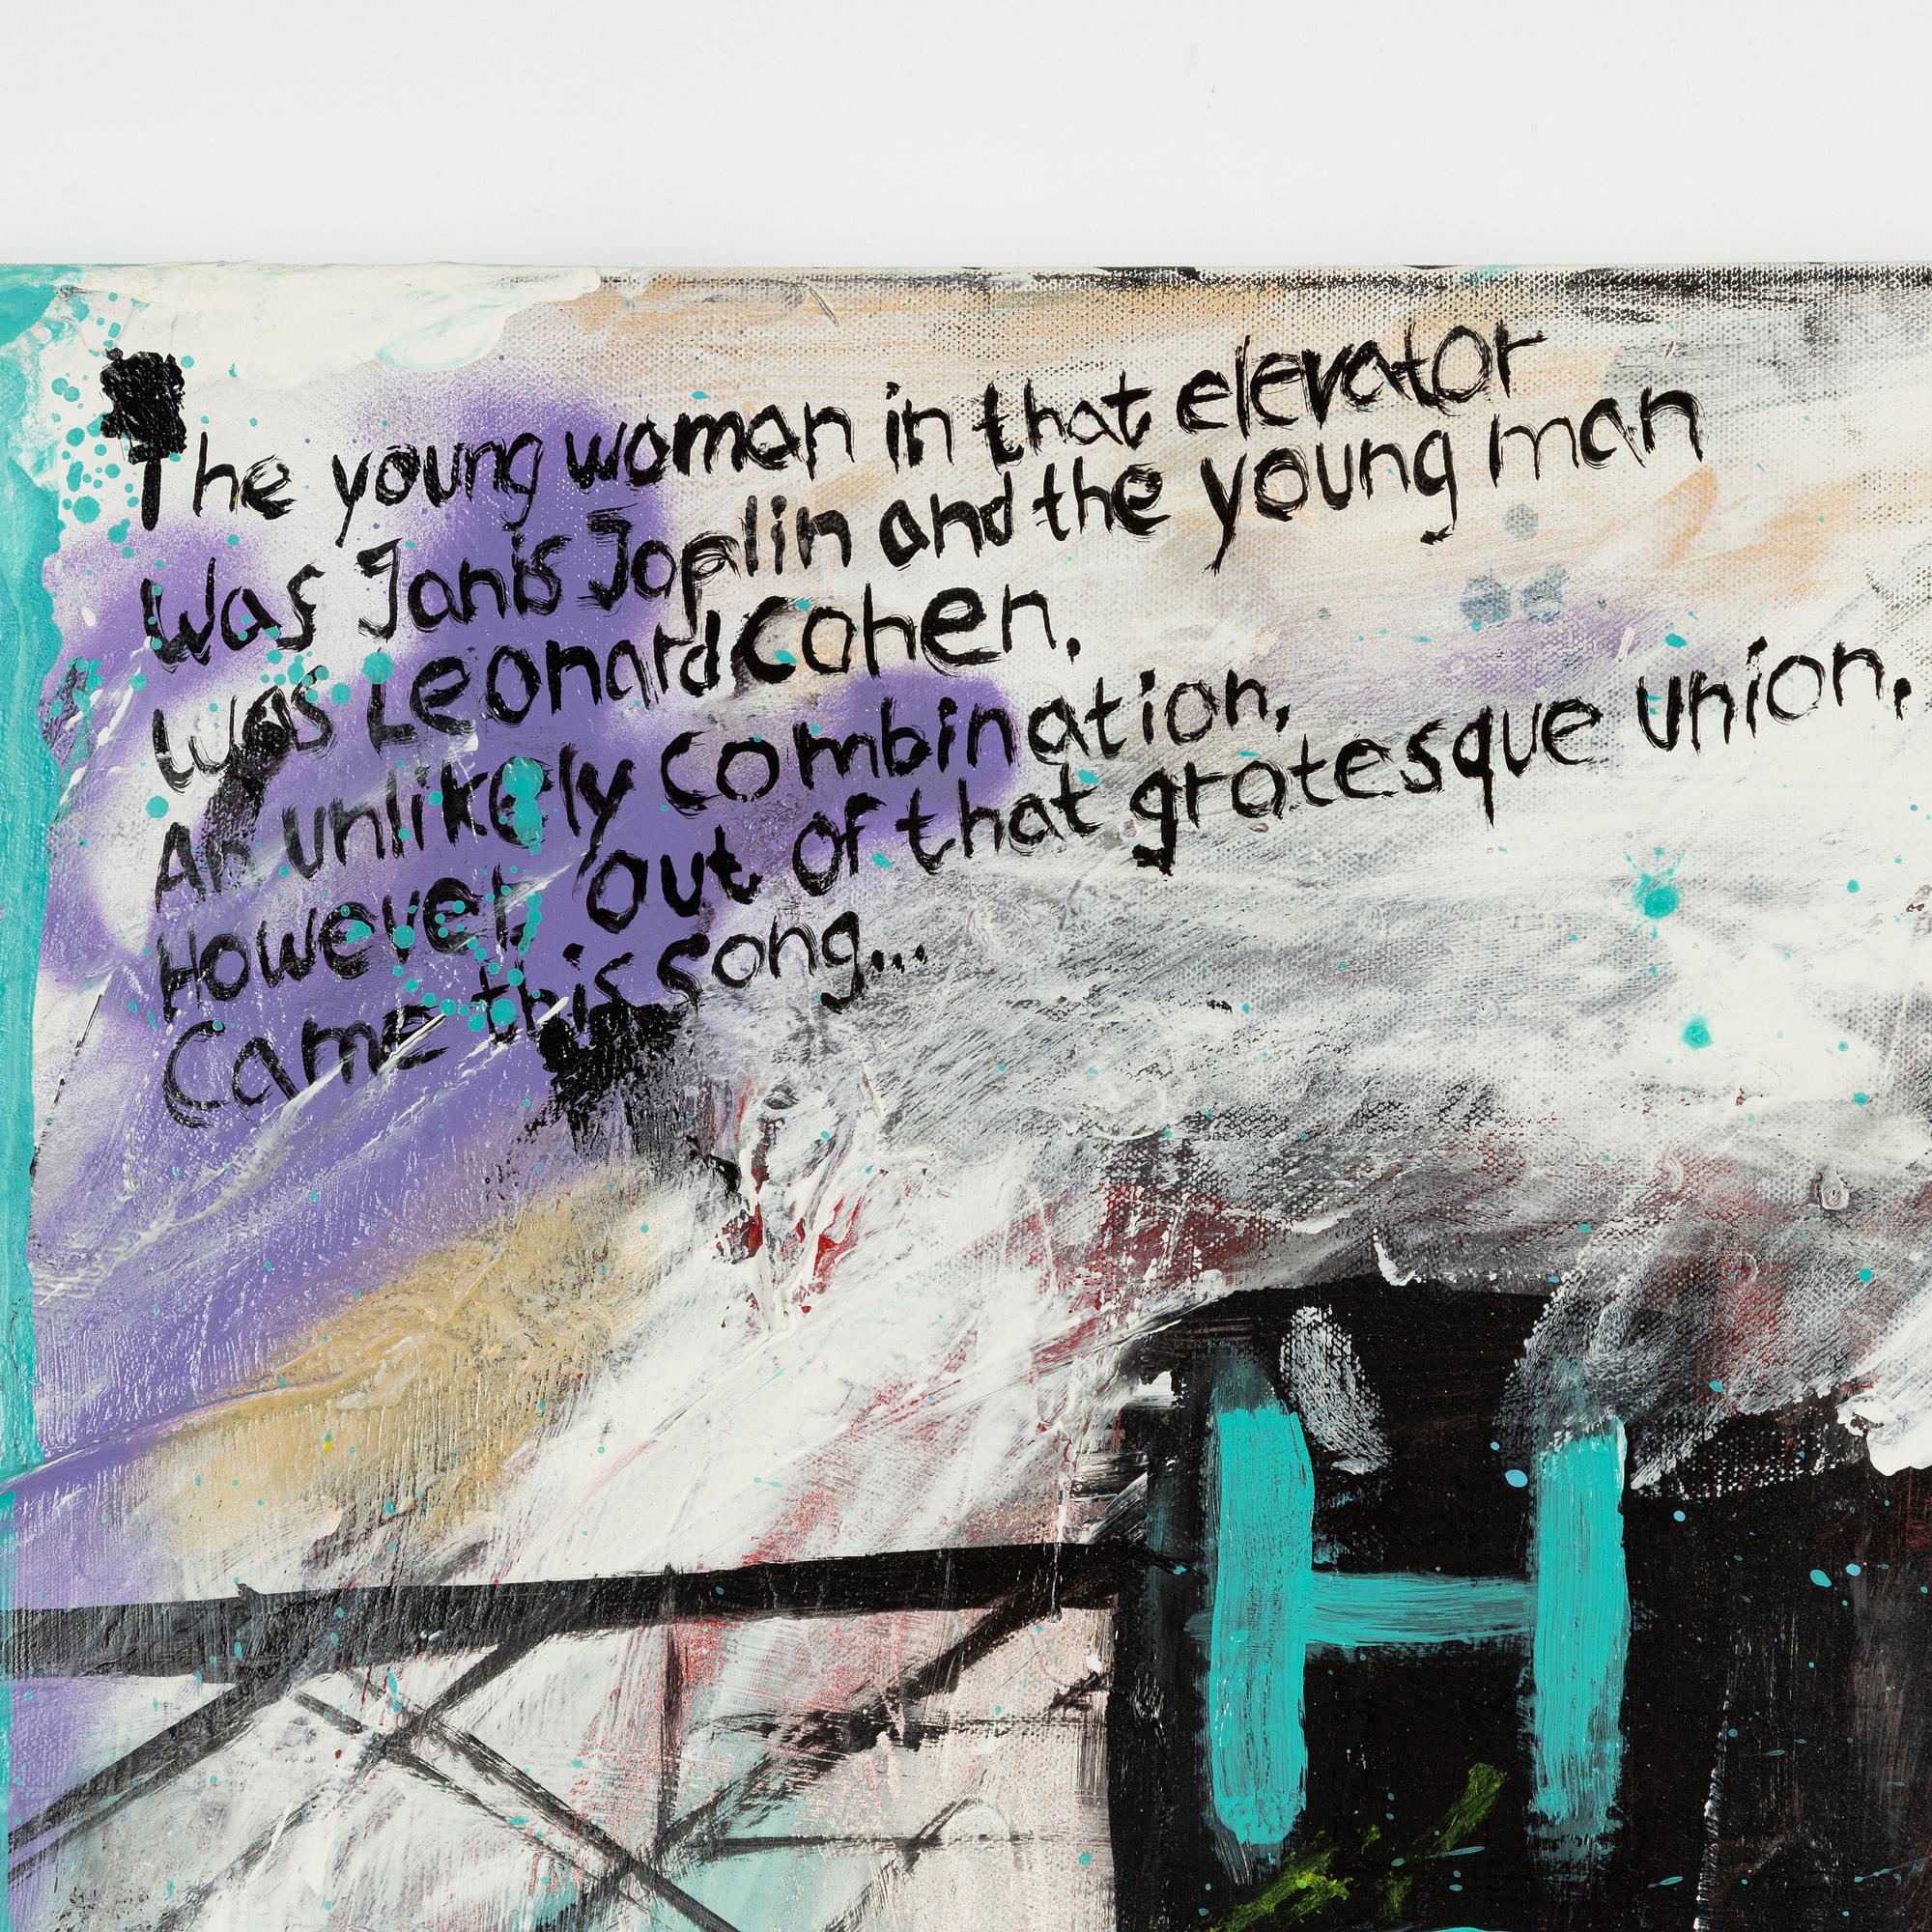 The young woman in that elevator
Was Janis Joplin and the young man
Was Leonard Cohen.
An unlikely combination,
However, out of that grotesque union,
Came this song...
H